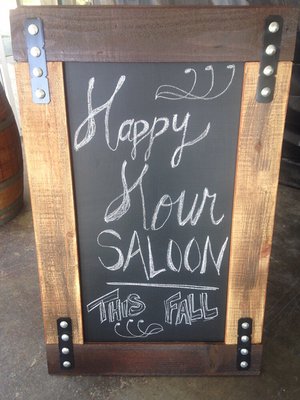 Happy
Hour
SALOON
THIS FALL